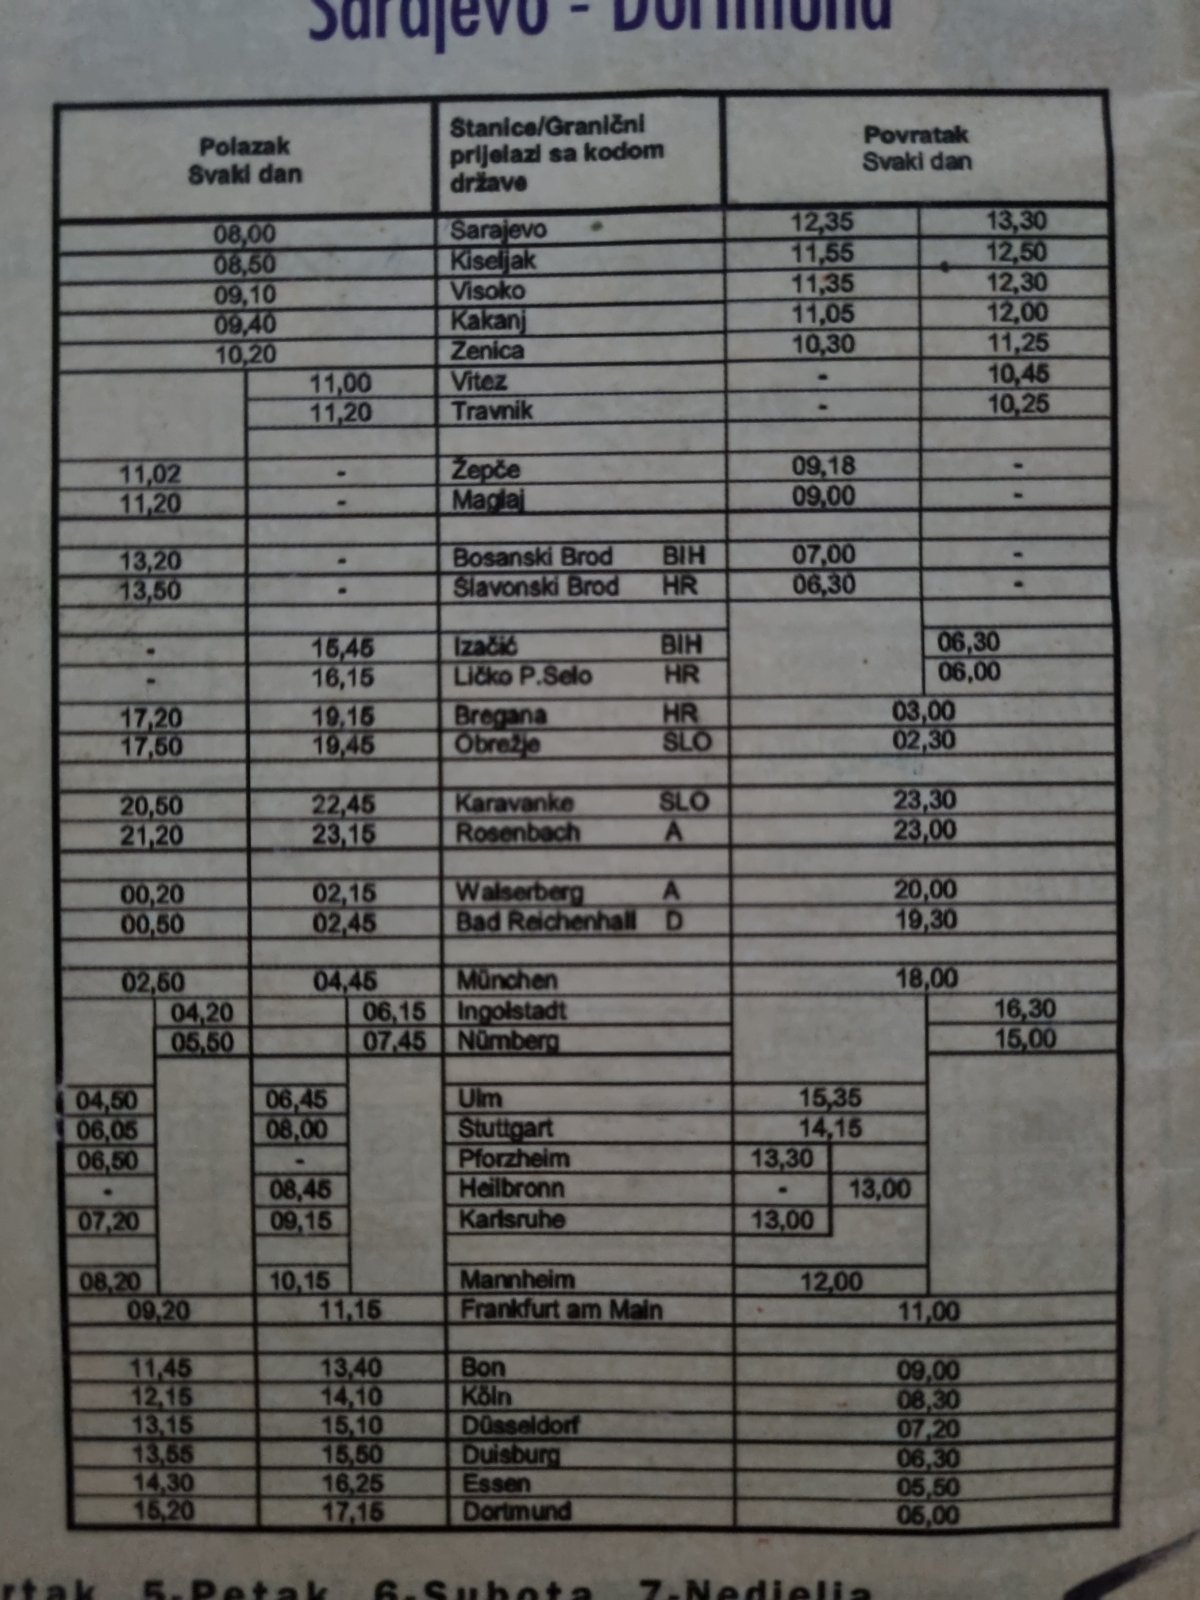 Sarajevo - Dortmund
Polazak
Svaki dan
Stanice/Granični
prijelazi sa kodom
države
Povratak
Svaki dan
08,00 Sarajevo 12,35 13,30
08,50 Kiseljak 11,55 12,50
09,10 Visoko 11,35 12,30
09,40 Kakanj 11,05 12,00
10,20 Zenica 10,30 11,25
11,00 Vitez - 10,45
11,20 Travnik - 10,25
11,02 - Žepče 09,18 -
11,20 - Maglaj 09,00 -
13,20 - Bosanski Brod BIH 07,00 -
13,50 - Slavonski Brod HR 06,30 -
- 15,45 Izačić BIH 06,30
- 16,15 Ličko P.Selo HR 06,00
17,20 19,15 Bregana HR 03,00
17,50 19,45 Obrežje SLO 02,30
20,50 22,45 Karavanke SLO 23,30
21,20 23,15 Rosenbach A 23,00
00,20 02,15 Walserberg A 20,00
00,50 02,45 Bad Reichenhall D 19,30
02,50 04,45 München 18,00
04,20 06,15 Ingolstadt 16,30
05,50 07,45 Nürnberg 15,00
04,50 06,45 Ulm 15,35
06,05 08,00 Stuttgart 14,15
06,50 - Pforzheim 13,30
- 08,45 Heilbronn - 13,00
07,20 09,15 Karlsruhe 13,00
08,20 10,15 Mannheim 12,00
09,20 11,15 Frankfurt am Main 11,00
11,45 13,40 Bon 09,00
12,15 14,10 Köln 08,30
13,15 15,10 Düsseldorf 07,20
13,55 15,50 Duisburg 06,30
14,30 16,25 Essen 05,50
15,20 17,15 Dortmund 05,00
rtak 5-Petak 6-Subota 7-Nedjelja